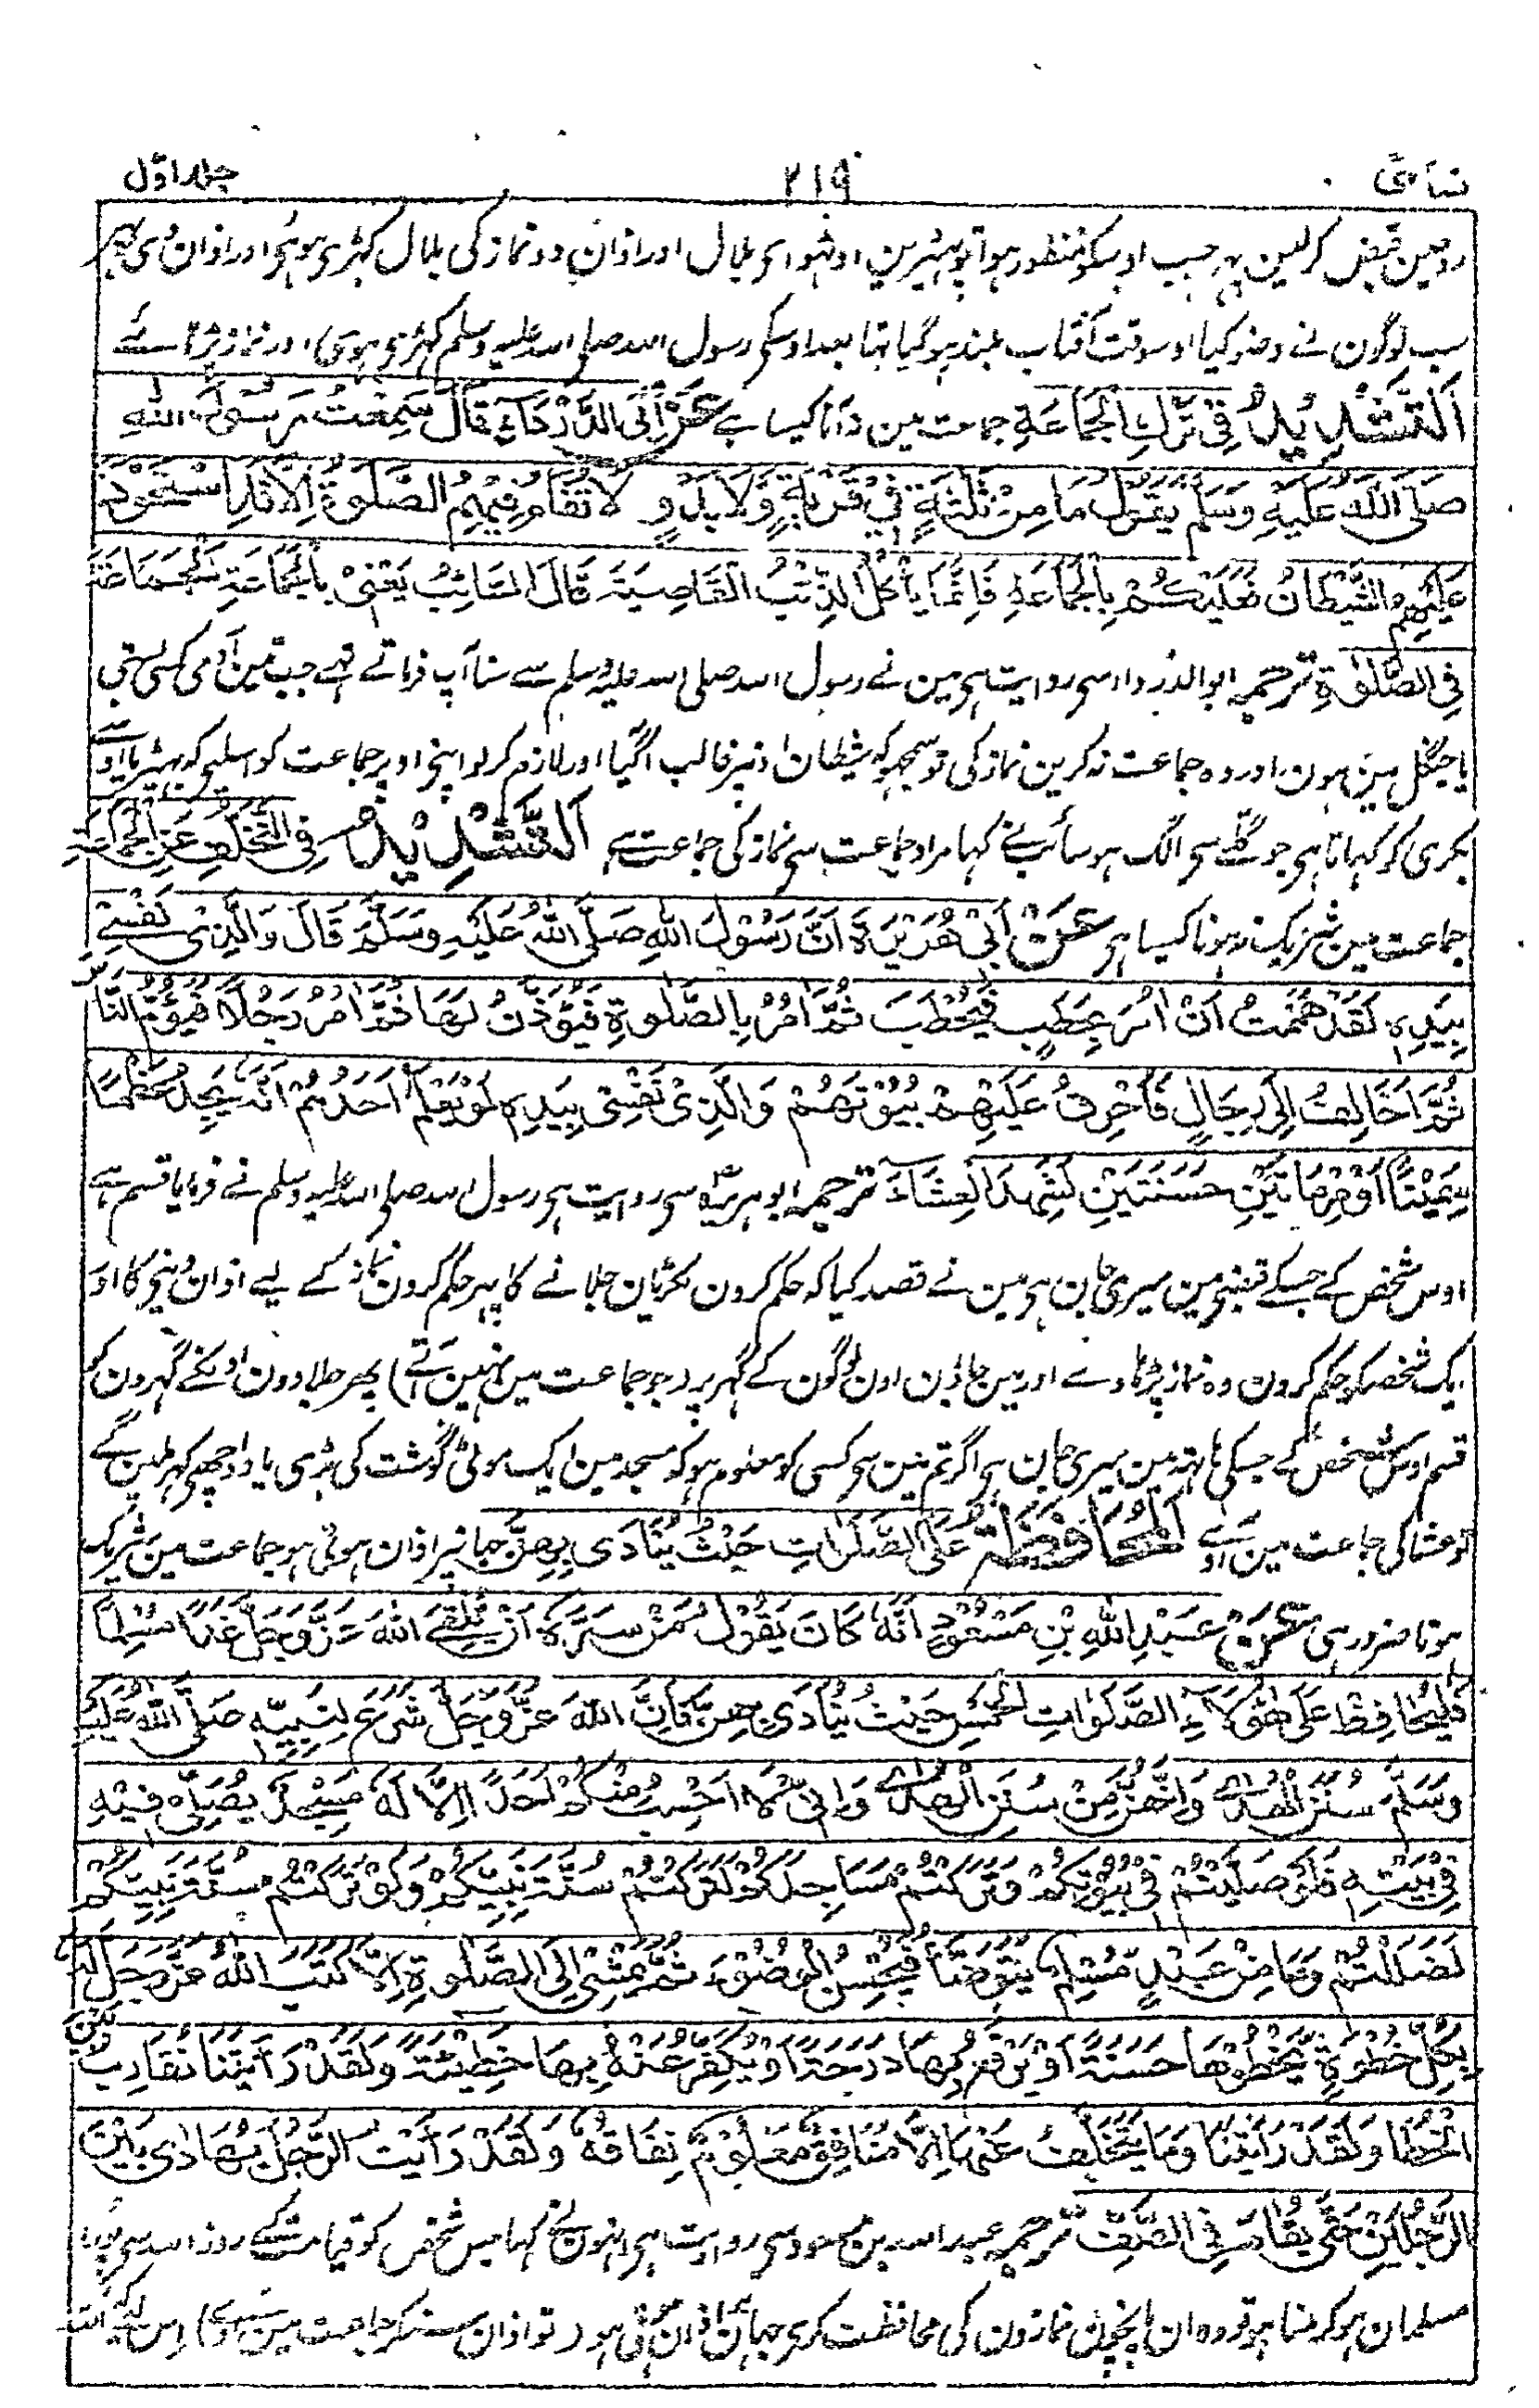 نسائی ۲۱۹ جلد اوّل
روحین قبض کرلین پہر جب اوسکو منظور ہوا تو پہیر دین اوٹہو اے بلال اور اذان دو نماز کی بلال کہڑی ہوئے اور اذان دی پہر
سب لوگون نے وضو کیا اوسوقت آفتاب بلند ہو گیا تہا بعد اوسکے رسول اللہ صلی اللہ علیہ وسلم کہڑی ہوئی اور نماز پڑہائے
اَلتَّشْدِيْدُ فِيْ تَرْكِ الْجَمَاعَةِ جماعت مین نہ آنا کیسا ہے عَنْ اَبِی الدَّرْدَاءِ قَالَ سَمِعْتُ رَسُوْلَ اللّٰهِ
صَلَّی اللّٰهُ عَلَيْهِ وَسَلَّمَ يَقُوْلُ مَا مِنْ ثَلٰثَةٍ فِيْ قَرْيَةٍ وَّلَا بَدْوٍ لَا تُقَامُ فِيْهِمُ الصَّلٰوةُ اِلَّا قَدِ اسْتَحْوَذَ
عَلَيْهِمُ الشَّيْطَانُ فَعَلَيْكُمْ بِالْجَمَاعَةِ فَاِنَّمَا يَأْكُلُ الذِّئْبُ الْقَاصِيَةَ قَالَ السَّائِبُ يَعْنِیْ بِالْجَمَاعَةِ الْجَمَاعَةَ
فِی الصَّلٰوةِ ترجمہ ابو الدرداء سے روایت ہے مین نے رسول اللہ صلی اللہ علیہ وسلم سے سنا آپ فرماتے تہے جب تین آدمی کسی بستی
یا جنگل مین ہون اور وہ جماعت نہ کرین نماز کی تو سمجہو کہ شیطان اونپر غالب آگیا اور لازم کر لو اپنے اوپر جماعت کو اسلیے کہ بہیڑیا اوسی
بکری کو کہاتا ہے جو گلّے سے الگ ہو سائب نے کہا مراد جماعت سے نماز کی جماعت ہے اَلتَّشْدِيْدُ فِی التَّخَلُّفِ عَنِ الْجَمَاعَةِ
جماعت مین شریک نہ ہونا کیسا ہے عَنْ اَبِیْ هُرَيْرَةَ اَنَّ رَسُوْلَ اللّٰهِ صَلَّی اللّٰهُ عَلَيْهِ وَسَلَّمَ قَالَ وَالَّذِیْ نَفْسِیْ
بِيَدِهٖ لَقَدْ هَمَمْتُ اَنْ اٰمُرَ بِحَطَبٍ فَيُحْطَبَ ثُمَّ اٰمُرَ بِالصَّلٰوةِ فَيُؤَذَّنَ لَهَا ثُمَّ اٰمُرَ رَجُلًا فَيَؤُمَّ النَّاسَ
ثُمَّ اُخَالِفُ اِلٰی رِجَالٍ فَاُحَرِّقُ عَلَيْهِمْ بُيُوْتَهُمْ وَالَّذِیْ نَفْسِیْ بِيَدِهٖ لَوْ يَعْلَمُ اَحَدُهُمْ اَنَّهٗ يَجِدُ عَظْمًا
سَمِيْنًا اَوْ مِرْمَاتَيْنِ حَسَنَتَيْنِ لَشَهِدَ الْعِشَاءَ ترجمہ ابوہریرہ سے روایت ہے رسول اللہ صلی اللہ علیہ وسلم نے فرمایا قسم ہے
اوس شخص کے جسکے قبضے مین میری جان ہے مین نے قصد کیا کہ حکم کرون لکڑیان جلانے کا پہر حکم کرون نماز کے لیے اذان دینے کا اور
ایک شخص کو حکم کرون وہ نماز پڑہا دے اور مین جاؤن اون لوگون کے گہر پر (جو جماعت مین نہین آتے) پھر جلادون اونکے گہرون کو
قسم اوس شخص کے جسکی ہاتہہ مین میری جان ہے اگر تم مین سے کسی کو معلوم ہو کہ مسجد مین ایک موٹی گوشت کی ہڈی یا دو اچھے کہر ملین گے
تو عشا کی جماعت مین آوے اَلْمُحَافَظَةُ عَلَی الصَّلَوَاتِ حَيْثُ يُنَادٰی بِهِنَّ جہانپر اذان ہوتی ہو جماعت مین شریک
ہونا ضرور ہی عَنْ عَبْدِ اللّٰهِ بْنِ مَسْعُوْدٍ اَنَّهٗ كَانَ يَقُوْلُ مَنْ سَرَّهٗ اَنْ يَّلْقَی اللّٰهَ عَزَّوَجَلَّ غَدًا مُسْلِمًا
فَلْيُحَافِظْ عَلٰی هٰؤُلَاءِ الصَّلَوَاتِ الْخَمْسِ حَيْثُ يُنَادٰی بِهِنَّ فَاِنَّ اللّٰهَ عَزَّوَجَلَّ شَرَعَ لِنَبِيِّهٖ صَلَّی اللّٰهُ عَلَيْهِ
وَسَلَّمَ سُنَنَ الْهُدٰی وَاِنَّهُنَّ مِنْ سُنَنِ الْهُدٰی وَاِنِّیْ لَا اَحْسِبُ مِنْكُمْ اَحَدًا اِلَّا لَهٗ مَسْجِدٌ يُصَلِّیْ فِيْهِ
فِیْ بَيْتِهٖ فَلَوْ صَلَّيْتُمْ فِیْ بُيُوْتِكُمْ وَتَرَكْتُمْ مَسَاجِدَكُمْ لَتَرَكْتُمْ سُنَّةَ نَبِيِّكُمْ وَلَوْ تَرَكْتُمْ سُنَّةَ نَبِيِّكُمْ
لَضَلَلْتُمْ وَمَا مِنْ عَبْدٍ مُسْلِمٍ يَتَوَضَّأُ فَيُحْسِنُ الْوُضُوْءَ ثُمَّ يَمْشِیْ اِلَی الصَّلٰوةِ اِلَّا كَتَبَ اللّٰهُ عَزَّوَجَلَّ لَهٗ
بِكُلِّ خُطْوَةٍ يَّخْطُوْهَا حَسَنَةً اَوْ يَرْفَعُ لَهٗ بِهَا دَرَجَةً اَوْ يُكَفِّرُ عَنْهُ بِهَا خَطِيْئَةً وَلَقَدْ رَاَيْتُنَا نُقَارِبُ بَيْنَ
الْخُطَا وَلَقَدْ رَاَيْتُنَا وَمَا يَتَخَلَّفُ عَنْهَا اِلَّا مُنَافِقٌ مَّعْلُوْمٌ نِفَاقُهٗ وَلَقَدْ رَاَيْتُ الرَّجُلَ يُهَادٰی بَيْنَ
الرَّجُلَيْنِ حَتّٰی يُقَامَ فِی الصَّفِّ ترجمہ عبد اللہ بن مسعود سے روایت ہے انہون نے کہا جس شخص کو قیامت کے روز اللہ سے
مسلمان ہو کر ملنا ہو تو وہ ان پانچون نمازون کی محافظت کرے جہان اذان ہوتی ہو (تو اذان سنکر جماعت مین آوے) اس لیے کہ اللہ